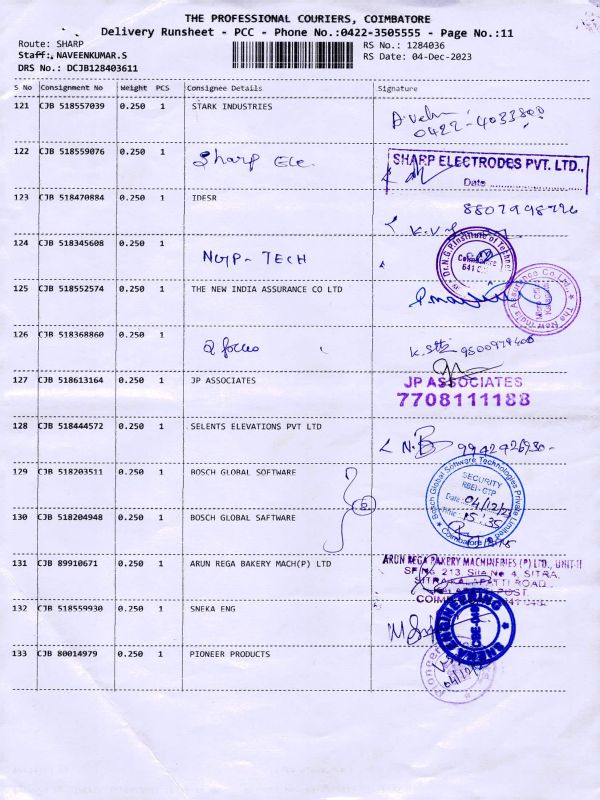 THE PROFESSIONAL COURIERS, COIMBATORE
Delivery Runsheet - PCC - Phone No.:0422-3505555 - Page No.:11
Route: SHARP
RS No.: 1284036
Staff: NAVEENKUMAR.S
RS Date: 04-Dec-2023
DRS No.: DCJB128403611
S No Consignment No Weight PCS Consignee Details Signature
121 CJB 518557039 0.250 1 STARK INDUSTRIES
0422-4033800
122 CJB 518559076 0.250 1 Sharp Ele
SHARP ELECTRODES PVT. LTD.,
Date
123 CJB 518470884 0.250 1 IDESR
8807998726
K.V.
124 CJB 518345608 0.250 1 NGIP-TECH
Dr.N.G.P.Institute of Techn
Coimbatore
641 0
125 CJB 518552574 0.250 1 THE NEW INDIA ASSURANCE CO LTD
The New India Assurance Co Ltd
126 CJB 518368860 0.250 1 2 focus
9500979408
127 CJB 518613164 0.250 1 JP ASSOCIATES
JP ASSOCIATES
7708111188
128 CJB 518444572 0.250 1 SELENTS ELEVATIONS PVT LTD
N.B 9942926930
129 CJB 518203511 0.250 1 BOSCH GLOBAL SOFTWARE
Bosch Global Software Technologies Private Limited
SECURITY
RBEI-CTP
Date: 04/12/23
Time: 15:35
Coimbatore
130 CJB 518204948 0.250 1 BOSCH GLOBAL SAFTWARE
131 CJB 89910671 0.250 1 ARUN REGA BAKERY MACH(P) LTD
ARUN REGA BAKERY MACHINERIES (P) LTD., UNIT-II
SF No. 213, Site No 4, SITRA,
132 CJB 518559930 0.250 1 SNEKA ENG
SNEKA ENGINEERING
133 CJB 80014979 0.250 1 PIONEER PRODUCTS
Pioneer
04/12/